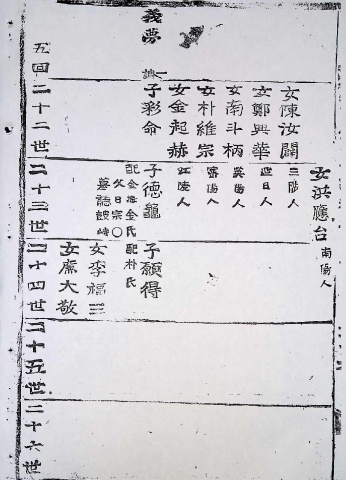 義夢
五回
二十二世
女洪應台
南陽人
女陳汝闢
三陟人
女鄭興華
延日人
女南斗柄
英陽人
女朴維宗
密陽人
女金起赫
江陵人
子彩命
二十三世
子德龜
配金海金氏
父日宗
二十四世
子願得
配朴氏
女李福三
女席大敬
二十五世
二十六世